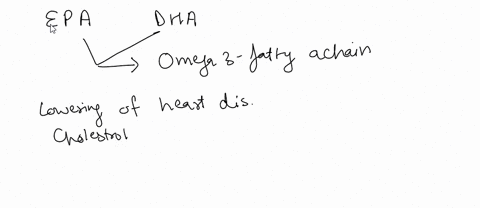 EPA DHA
Omega 3-fatty achain
Lowering of heart dis.
Cholestrol